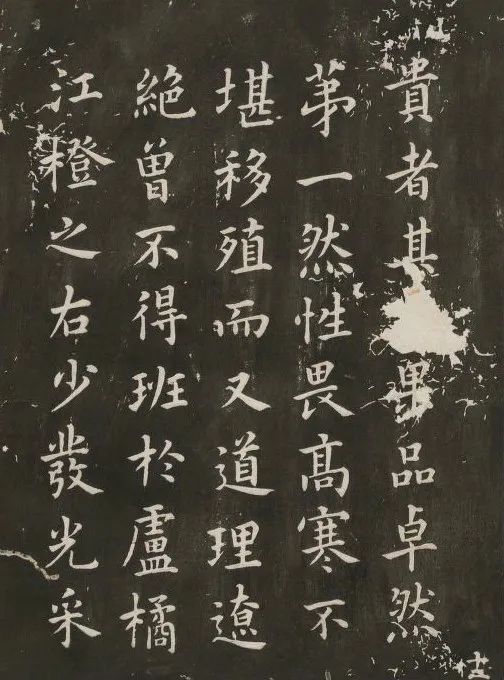 貴者其果品卓然
苐一然性畏髙寒不
堪移殖而又道理遼
絶曾不得班於盧橘
江橙之右少發光采